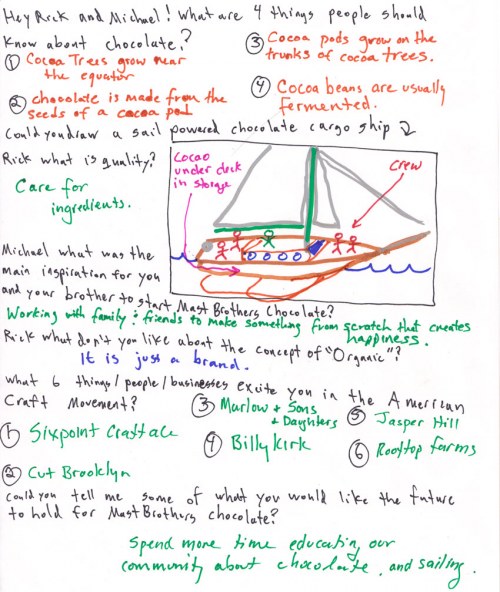 Hey Rick and Michael! What are 4 things people should
know about chocolate?
① Cocoa Trees grow near
the equator
② chocolate is made from the
seeds of a cocoa pod
③ Cocoa pods grow on the
trunks of cocoa trees.
④ Cocoa beans are usually
fermented.
Could you draw a sail powered chocolate cargo ship
Rick what is quality?
Care for
ingredients.
Cocao
under deck
in storage
crew
Michael what was the
main inspiration for you
and your brother to start Mast Brothers Chocolate?
Working with family & friends to make something from scratch that creates
happiness.
Rick what don't you like about the concept of "Organic"?
It is just a brand.
What 6 things/people/businesses excite you in the American
Craft Movement?
① Sixpoint Craft ale
② Cut Brooklyn
③ Marlow + Sons
+ Daughters
④ Billykirk
⑤ Jasper Hill
⑥ Rooftop farms
Could you tell me some of what you would like the future
to hold for Mast Brothers chocolate?
Spend more time educating our
community about chocolate, and sailing.